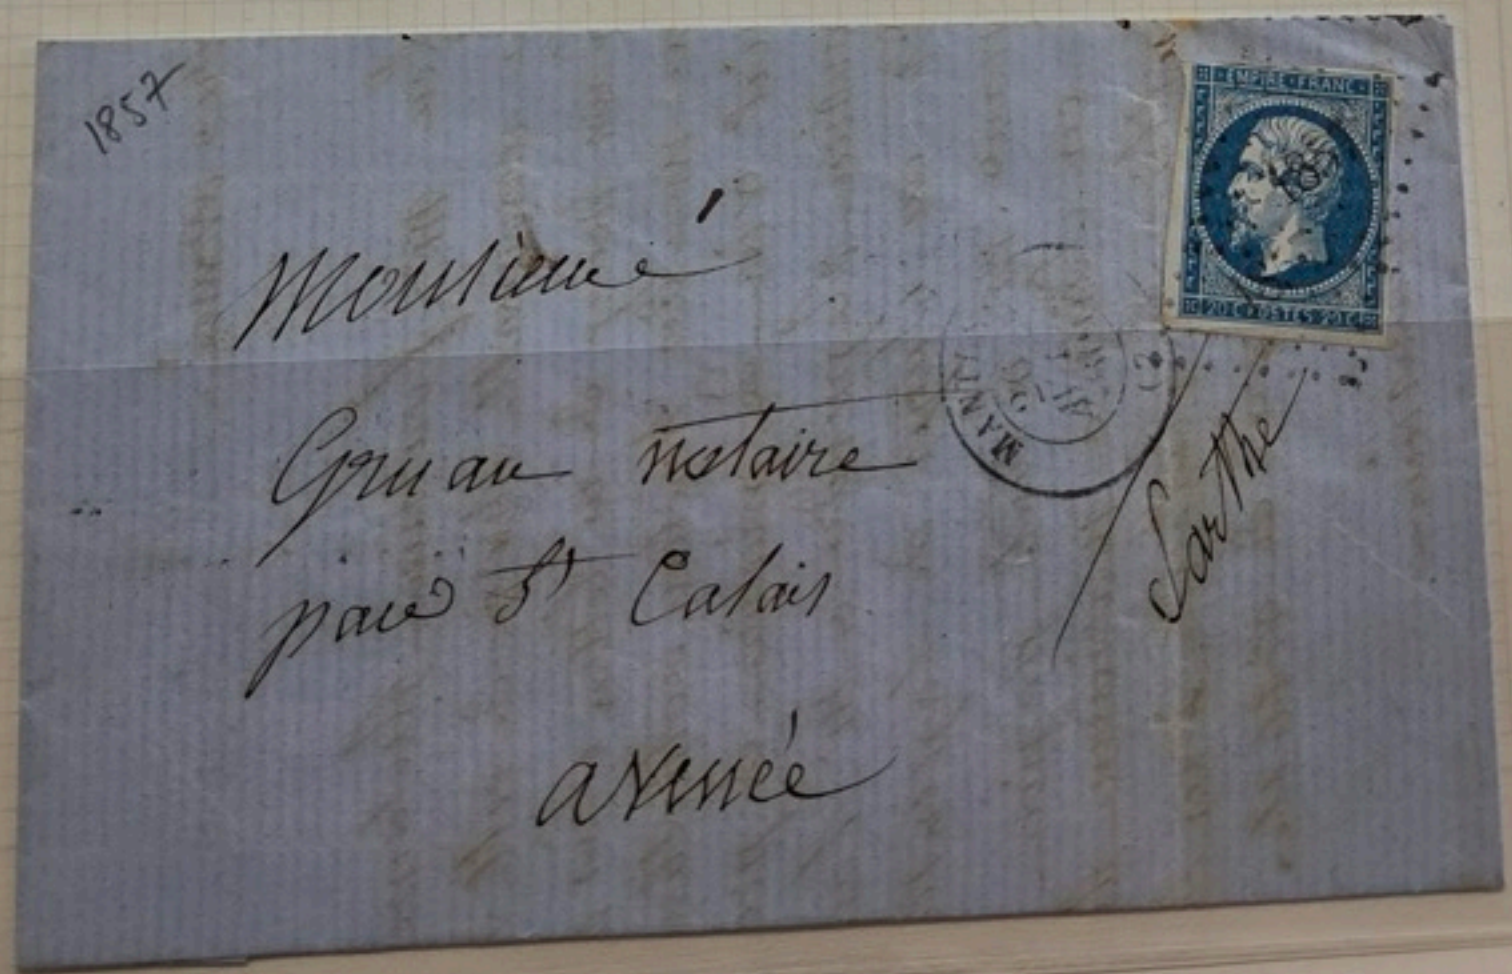 1857
EMPIRE FRANC
20 C POSTES 20 C
MAN
Monsieur
Gruau notaire
par St Calais
Sarthe
a